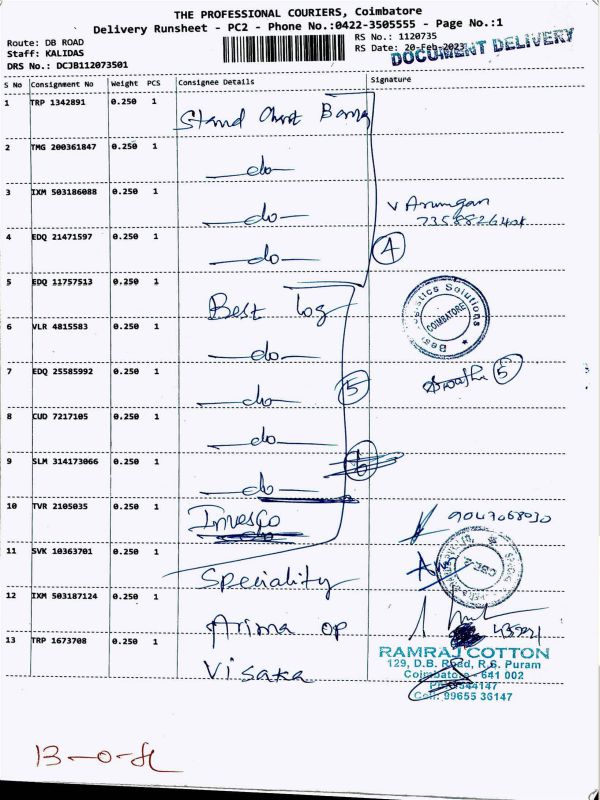 THE PROFESSIONAL COURIERS, Coimbatore
Delivery Runsheet - PC2 - Phone No.:0422-3505555 - Page No.:1
Route: DB ROAD RS No.: 1120735
Staff: KALIDAS RS Date: 20-Feb-2023
DOCUMENT DELIVERY
DRS No.: DCJB112073501
S No Consignment No Weight PCS Consignee Details Signature
1 TRP 1342891 0.250 1
2 TMG 200361847 0.250 1 do
3 IXM 503186088 0.250 1 do
4 EDQ 21471597 0.250 1 do 4
5 EDQ 11757513 0.250 1 Best log
Best Logistics Solutions
COIMBATORE
6 VLR 4815583 0.250 1 do
7 EDQ 25585992 0.250 1 do 5 5
8 CUD 7217105 0.250 1 do
9 SLM 314173066 0.250 1 do
10 TVR 2105035 0.250 1 Invesco
11 SVK 10363701 0.250 1 Speciality
12 IXM 503187124 0.250 1 Arima op
13 TRP 1673708 0.250 1 Visaka
RAMRAJ COTTON
129, D.B. Road, R.S. Puram
Coimbatore - 641 002
Cell: 99655 36147